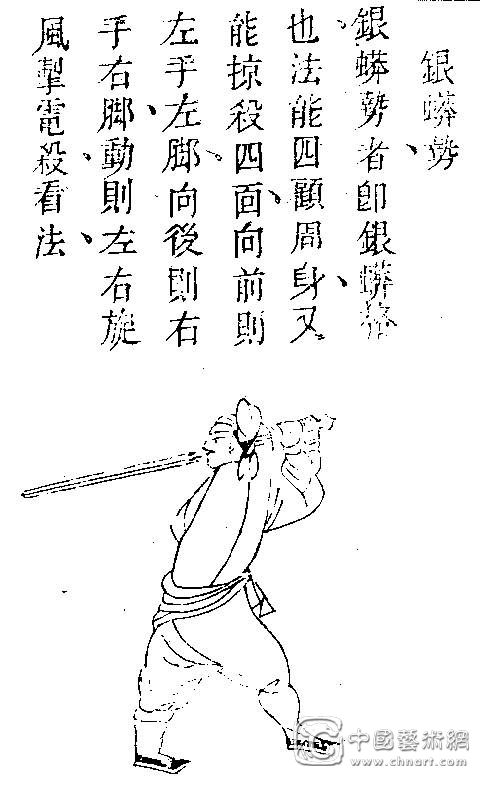 銀蟒勢
銀蟒勢者卽銀蟒格
也法能四顧周身又
能掠殺四面向前則
左手左脚向後則右
手右脚動則左右旋
風掣電殺看法
中國藝術網
www.chnart.com